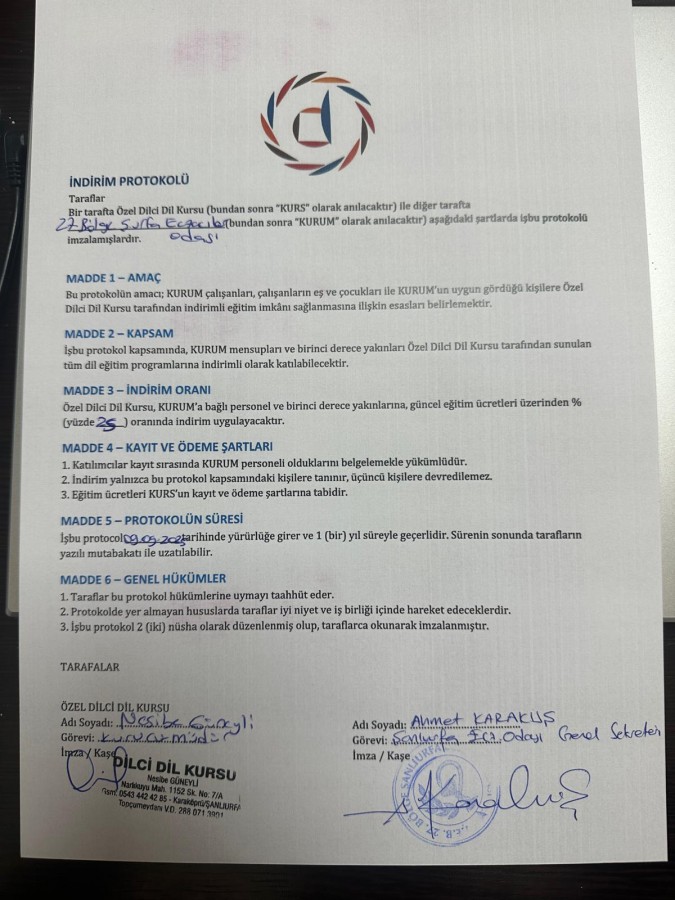 d
İNDİRİM PROTOKOLÜ
Taraflar
Bir tarafta Özel Dilci Dil Kursu (bundan sonra "KURS" olarak anılacaktır) ile diğer tarafta
27. Bölge Ş.urfa Eczacılar (bundan sonra "KURUM" olarak anılacaktır) aşağıdaki şartlarda işbu protokolü
imzalamışlardır. odası
MADDE 1 – AMAÇ
Bu protokolün amacı; KURUM çalışanları, çalışanların eş ve çocukları ile KURUM'un uygun gördüğü kişilere Özel
Dilci Dil Kursu tarafından indirimli eğitim imkânı sağlanmasına ilişkin esasları belirlemektir.
MADDE 2 – KAPSAM
İşbu protokol kapsamında, KURUM mensupları ve birinci derece yakınları Özel Dilci Dil Kursu tarafından sunulan
tüm dil eğitim programlarına indirimli olarak katılabilecektir.
MADDE 3 – İNDİRİM ORANI
Özel Dilci Dil Kursu, KURUM'a bağlı personel ve birinci derece yakınlarına, güncel eğitim ücretleri üzerinden %
(yüzde 25) oranında indirim uygulayacaktır.
MADDE 4 – KAYIT VE ÖDEME ŞARTLARI
1. Katılımcılar kayıt sırasında KURUM personeli olduklarını belgelemekle yükümlüdür.
2. İndirim yalnızca bu protokol kapsamındaki kişilere tanınır, üçüncü kişilere devredilemez.
3. Eğitim ücretleri KURS'un kayıt ve ödeme şartlarına tabidir.
MADDE 5 – PROTOKOLÜN SÜRESİ
İşbu protocol tarihinde yürürlüğe girer ve 1 (bir) yıl süreyle geçerlidir. Sürenin sonunda tarafların
yazılı mutabakatı ile uzatılabilir.
MADDE 6 – GENEL HÜKÜMLER
1. Taraflar bu protokol hükümlerine uymayı taahhüt eder.
2. Protokolde yer almayan hususlarda taraflar iyi niyet ve iş birliği içinde hareket edeceklerdir.
3. İşbu protokol 2 (iki) nüsha olarak düzenlenmiş olup, taraflarca okunarak imzalanmıştır.
TARAFALAR
ÖZEL DİLCİ DİL KURSU
Adı Soyadı: Nesibe Güneyli
Görevi: kurucu müdür
İmza / Kaşe
DİLCİ DİL KURSU
Nesibe GÜNEYLİ
Narlıkuyu Mah. 1152 Sk. No: 7/A
Gsm: 0543 442 42 85 - Karaköprü/ŞANLIURFA
Topçumeydanı V.D. 288 071 3901
Adı Soyadı: Ahmet KARAKUŞ
Görevi: Şanlıurfa Ecz. Odası Genel Sekreteri
İmza / Kaşe
27. BÖLGE ŞANLIURFA